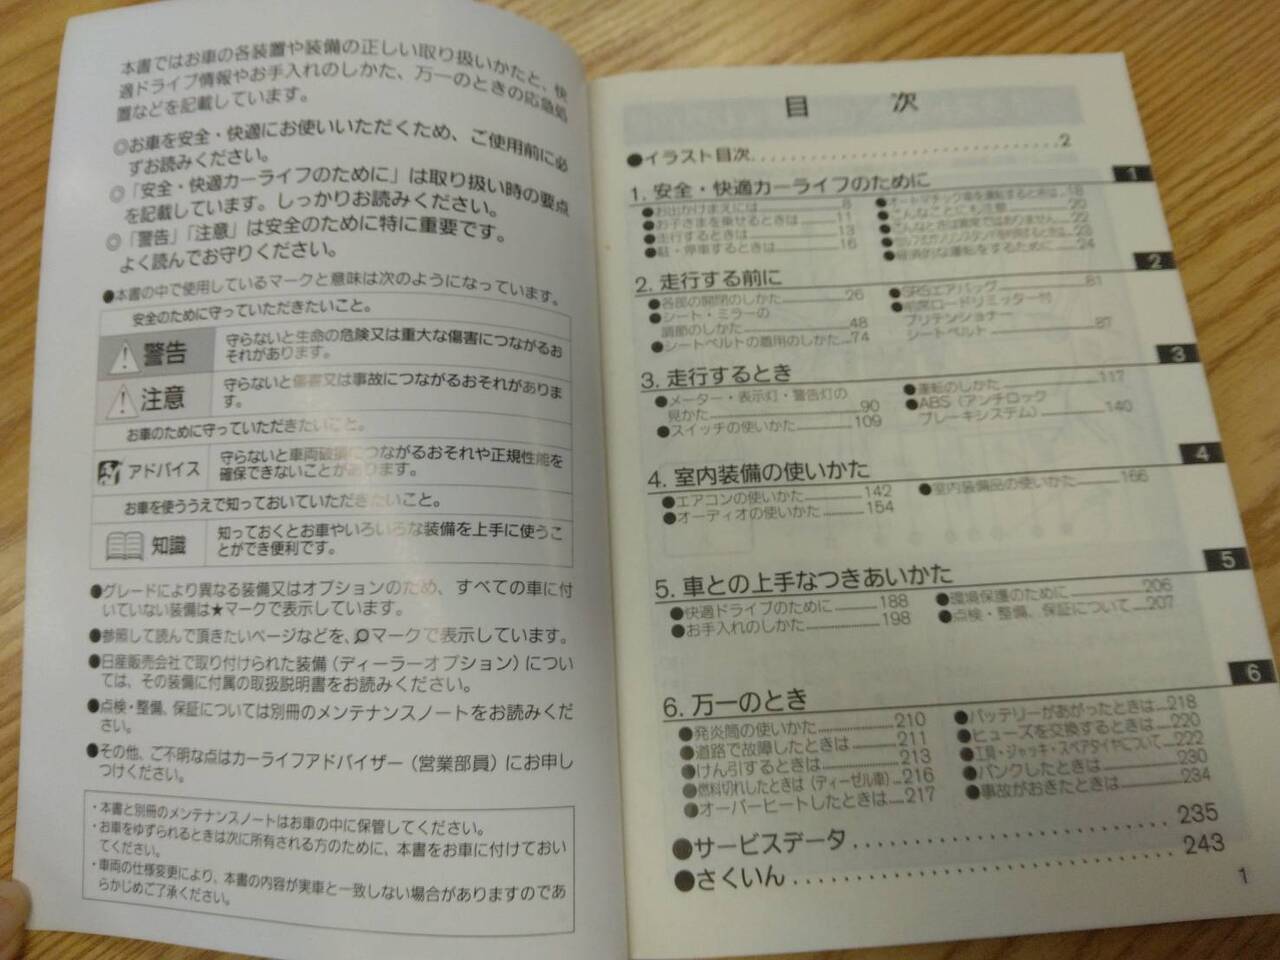 本書ではお車の各装置や装備の正しい取り扱いかたと、快
適ドライブ情報やお手入れのしかた、万一のときの応急処
置などを記載しています。
◎お車を安全・快適にお使いいただくため、ご使用前に必
ずお読みください。
◎「安全・快適カーライフのために」は取り扱い時の要点
を記載しています。しっかりお読みください。
◎「警告」「注意」は安全のために特に重要です。
よく読んでお守りください。
●本書の中で使用しているマークと意味は次のようになっています。
安全のために守っていただきたいこと。
警告
守らないと生命の危険又は重大な傷害につながるお
それがあります。
注意
守らないと傷害又は事故につながるおそれがありま
す。
お車のために守っていただきたいこと。
アドバイス
守らないと車両破損につながるおそれや正規性能を
確保できないことがあります。
お車を使ううえで知っておいていただきたいこと。
知識
知っておくとお車やいろいろな装備を上手に使うこ
とができ便利です。
●グレードにより異なる装備又はオプションのため、すべての車に付
いていない装備は★マークで表示しています。
●参照して読んで頂きたいページなどを、マークで表示しています。
●日産販売会社で取り付けられた装備（ディーラーオプション）につい
ては、その装備に付属の取扱説明書をお読みください。
●点検・整備、保証については別冊のメンテナンスノートをお読みくだ
さい。
●その他、ご不明な点はカーライフアドバイザー（営業部員）にお申し
つけください。
・本書と別冊のメンテナンスノートはお車の中に保管してください。
・お車をゆずられるときは次に所有される方のために、本書をお車に付けておい
てください。
・車両の仕様変更により、本書の内容が実車と一致しない場合がありますのであ
らかじめご了承ください。
目 次
●イラスト目次 2
1. 安全・快適カーライフのために 1
●お出かけまえには 8
●お子さまを乗せるときは 11
●走行するときは 13
●駐・停車するときは 16
●オートマチック車を運転するときは 18
●こんなことにも注意 20
●こんなときは異常ではありません 22
●セルフ式ガソリンスタンドを利用するときは 23
●経済的な運転をするために 24
2. 走行する前に 2
●各部の開閉のしかた 26
●シート・ミラーの
調節のしかた 48
●シートベルトの着用のしかた 74
●SRSエアバッグ 81
●前席ロードリミッター付
プリテンショナー
シートベルト 87
3. 走行するとき 3
●メーター・表示灯・警告灯の
見かた 90
●スイッチの使いかた 109
●運転のしかた 117
●ABS（アンチロック
ブレーキシステム） 140
4. 室内装備の使いかた 4
●エアコンの使いかた 142
●オーディオの使いかた 154
●室内装備品の使いかた 166
5. 車との上手なつきあいかた 5
●快適ドライブのために 188
●お手入れのしかた 198
●環境保護のために 206
●点検・整備、保証について 207
6. 万一のとき 6
●発炎筒の使いかた 210
●道路で故障したときは 211
●けん引するときは 213
●燃料切れしたときは（ディーゼル車） 216
●オーバーヒートしたときは 217
●バッテリーがあがったときは 218
●ヒューズを交換するときは 220
●工具・ジャッキ・スペアタイヤについて 222
●パンクしたときは 230
●事故がおきたときは 234
●サービスデータ 235
●さくいん 243
1